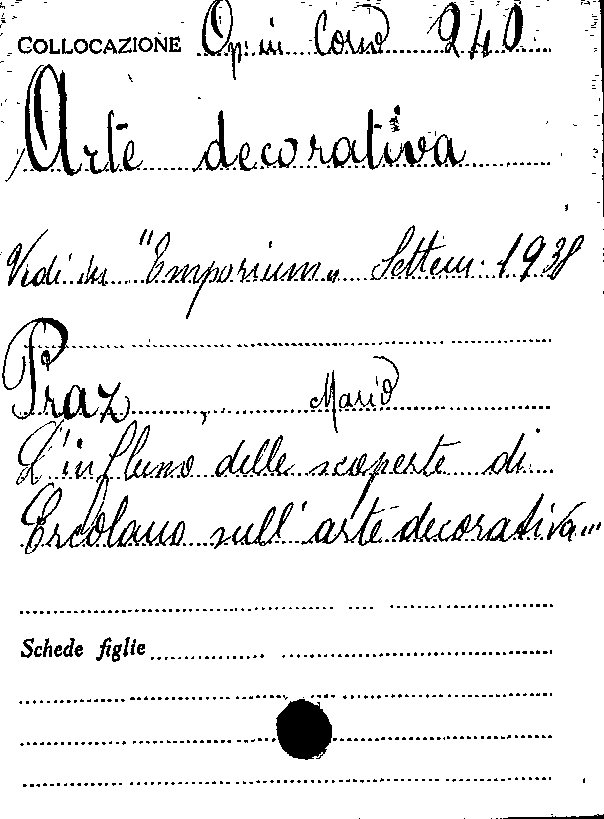 COLLOCAZIONE Op. in Corso 240
Arte decorativa
Vedi in "Emporium" Settem. 1938
Praz, Mario
L'influno delle scoperte di
Ercolano sull'arte decorativa...
Schede figlie